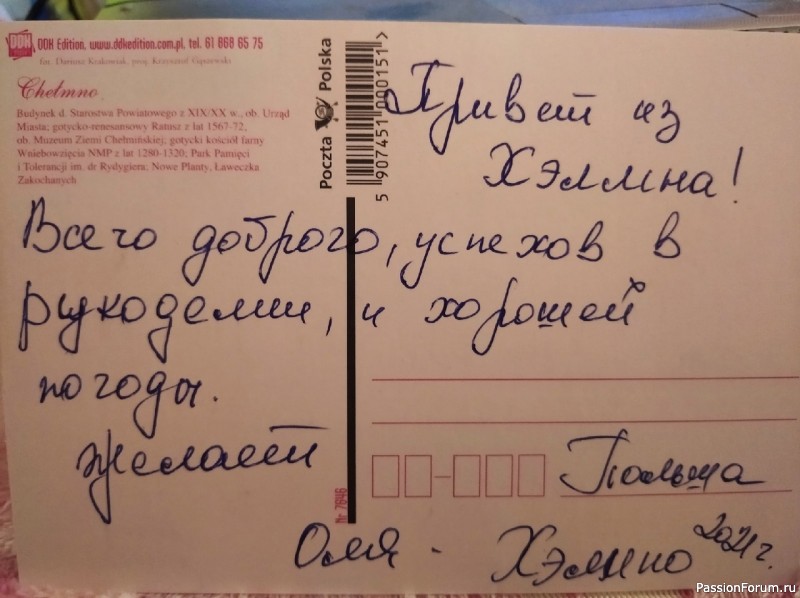 DDK DDK Edition, www.ddkedition.com.pl, tel. 61 868 65 75
Chełmno
Budynek d. Starostwa Powiatowego z XIX/XX w., ob. Urząd
Miasta; gotycko-renesansowy Ratusz z lat 1567-72,
ob. Muzeum Ziemi Chełmińskiej; gotycki kościół farny
Wniebowzięcia NMP z lat 1280-1320; Park Pamięci
i Tolerancji im. dr Rydygiera; Nowe Planty, Ławeczka
Zakochanych
Poczta Polska
5 907451 000151 >
Привет из
Хэлмна!
Всего доброго, успехов в
рукоделии, и хорошей
погоды.
желает
Польша
Оля - Хэлмно 2021г.
Nr 7646
PassionForum.ru